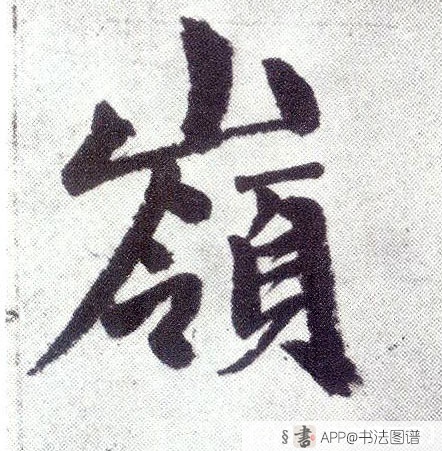 嶺
§ 書 APP@书法图谱